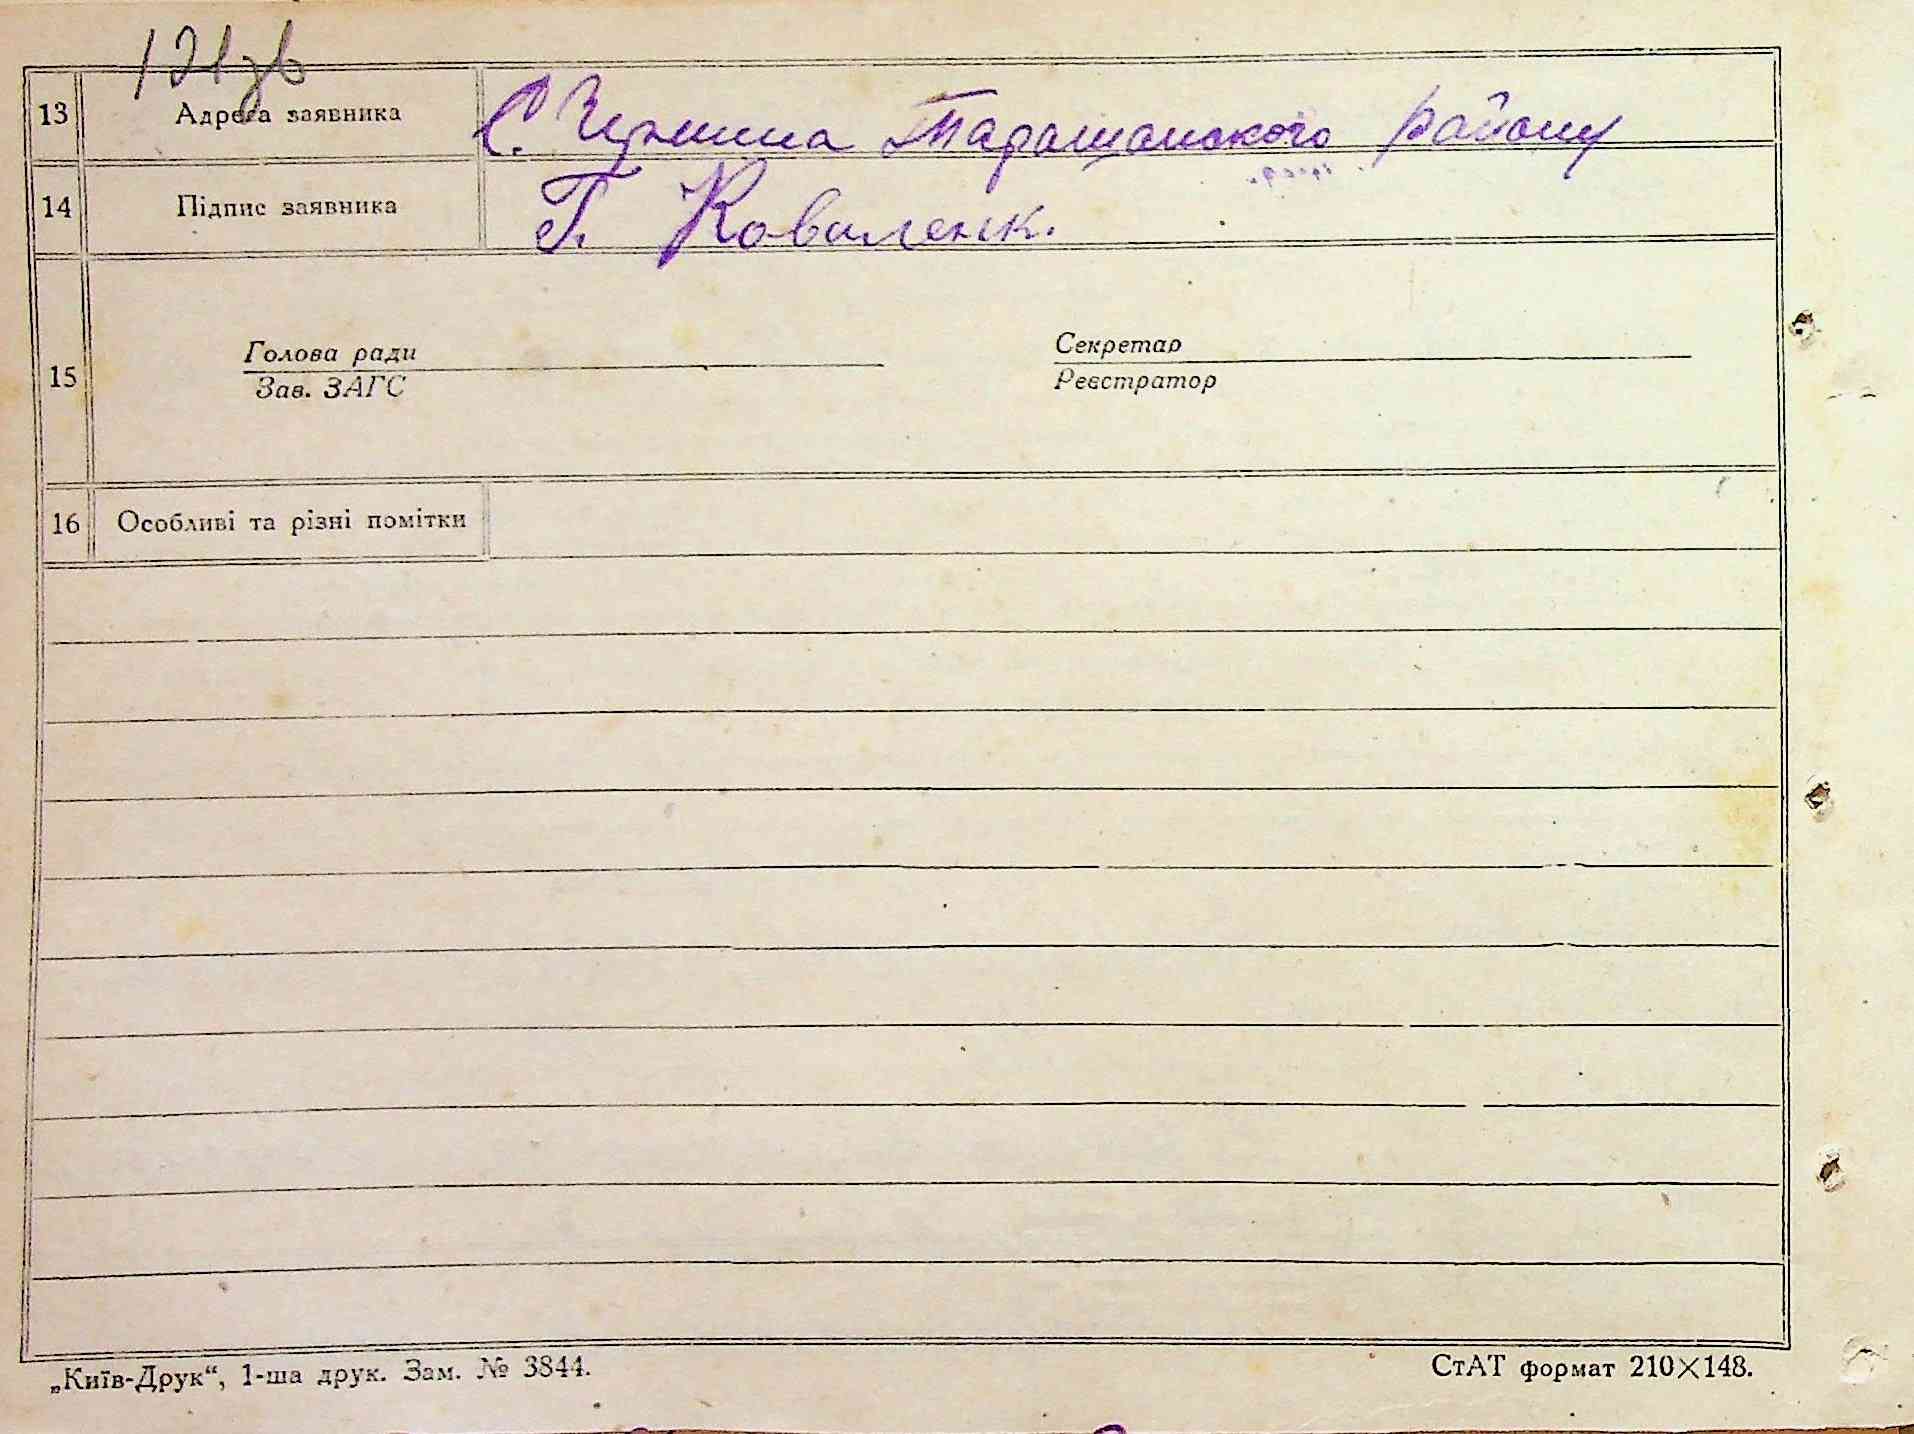 121зв
13 Адреса заявника С. Чупина Таращанского району
14 Підпис заявника Г. Коваленк.
Голова ради Секретар
15
Зав. ЗАГС Реєстратор
16 Особливі та різні помітки
„Київ-Друк“, 1-ша друк. Зам. № 3844. СтАТ формат 210×148.